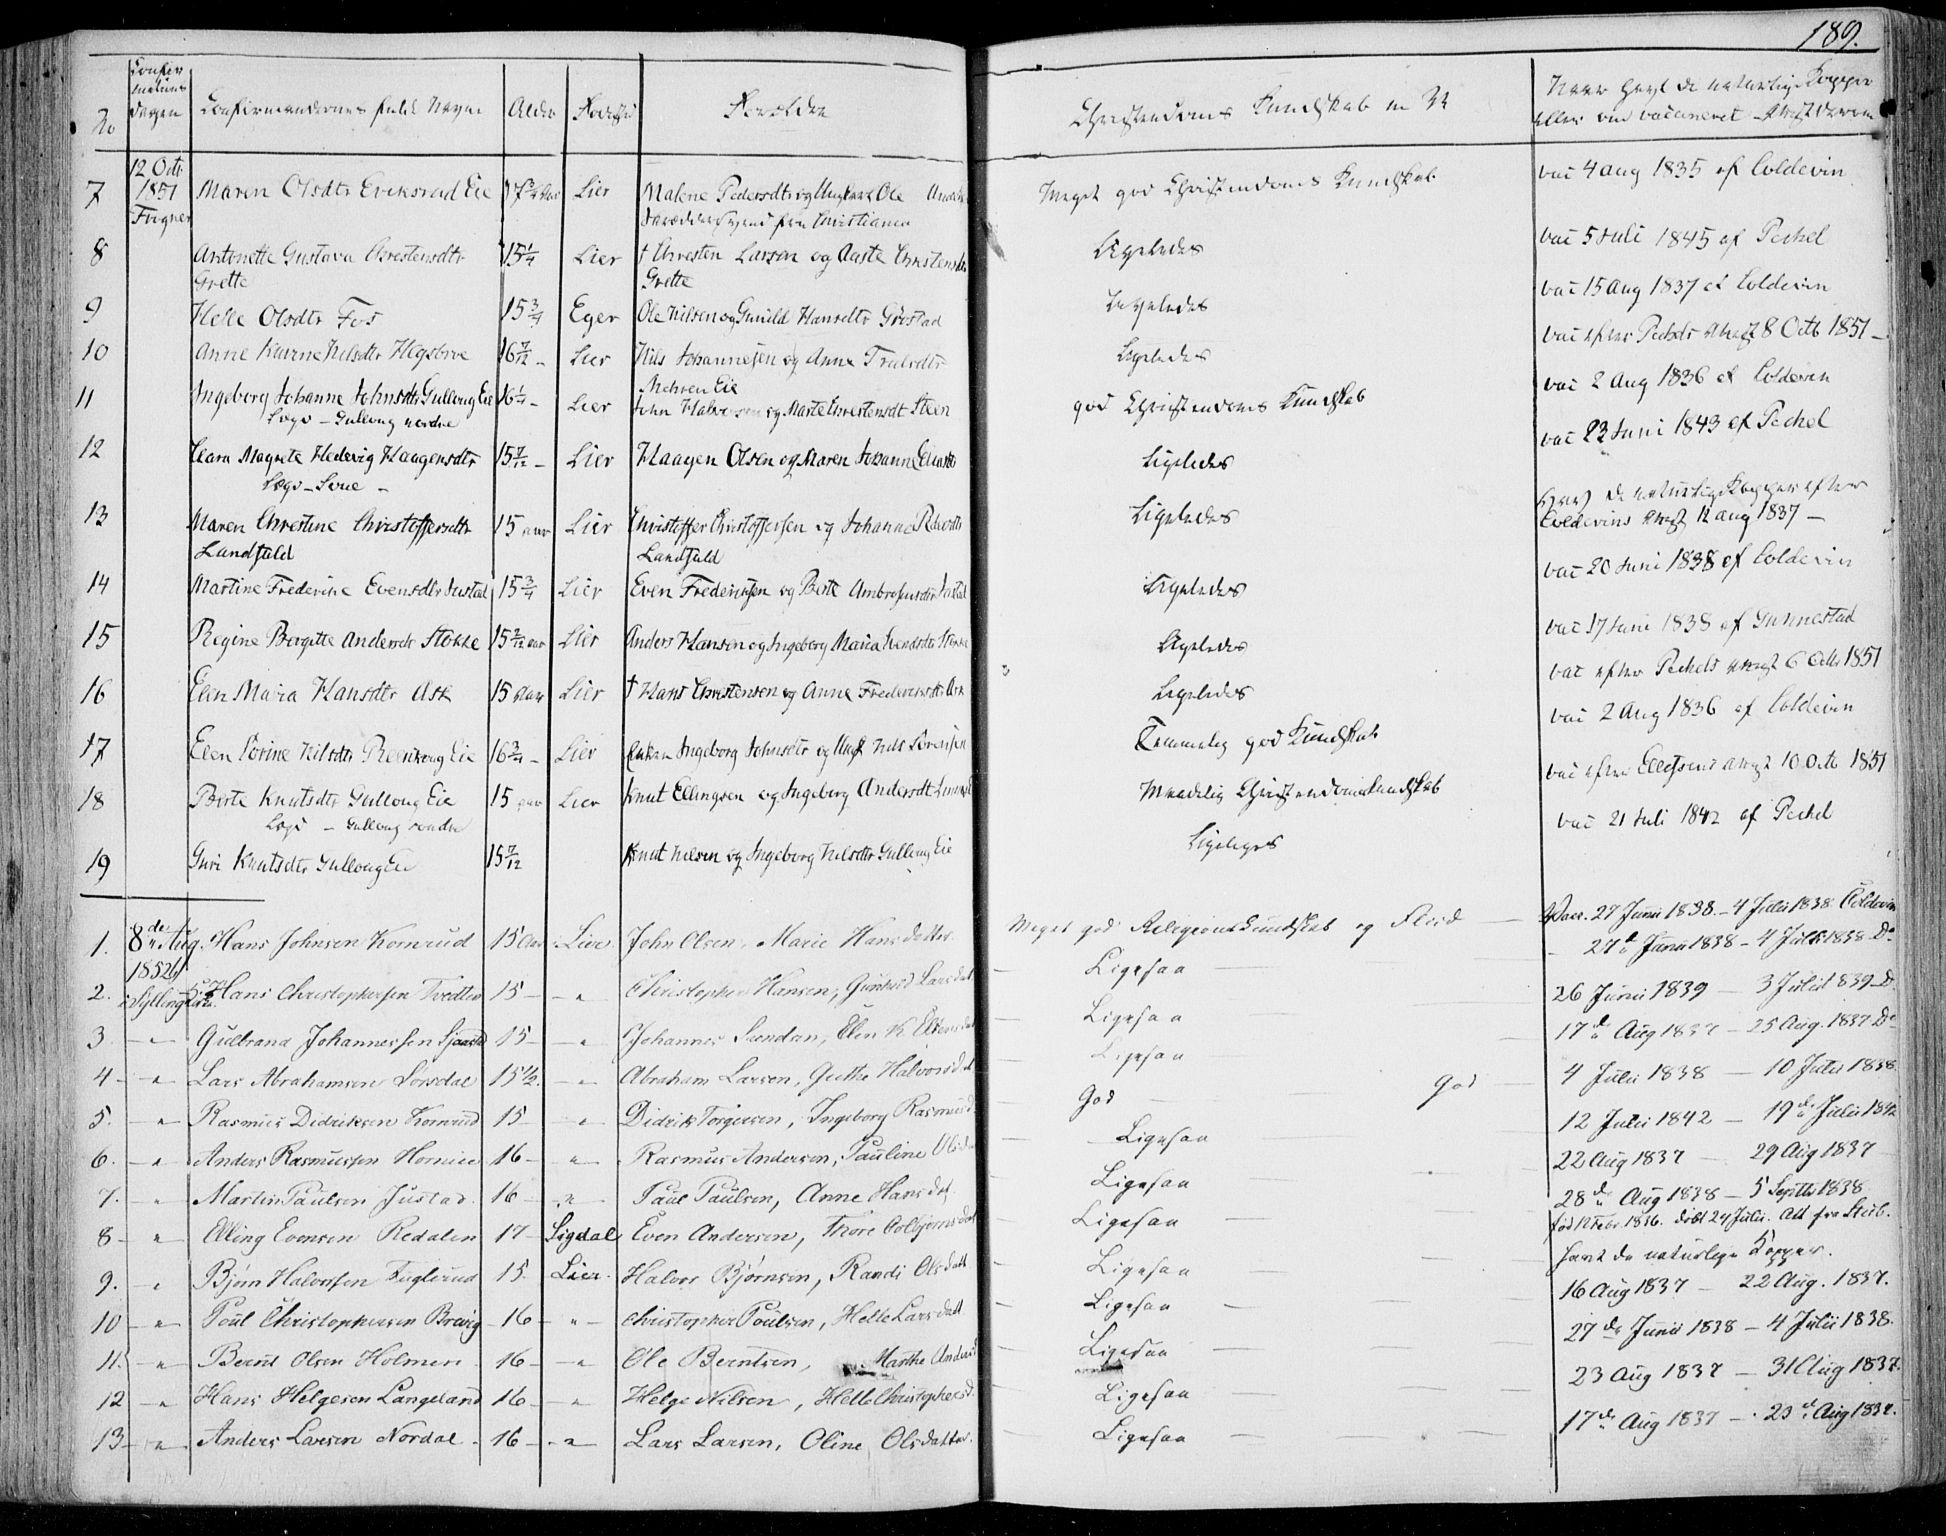 189.
No Confir mations dagen Confirmandernes fulde Navne Alder Fodested Forældre Christendoms Kundskab m V Naar havt de naturlige Kopper
eller vaccineret Attest derom
12 Octb
7 1851 Maren Olsdtr Eriksrud Eie 17 aar Lier Malene Pedersdtr og Ungkarl Ole Meget god Christendoms Kundskab vac 4 aug 1835 af Coldevin
Fra Christiania
8 Antonette Gustava Chrestensdtr 15 1/4 Lier † Chresten Larsen og Aaste Christensdtr Ligeledes vac 5 Juli 1845 af Peckel
Grette Grette
9 Helle Olsdtr Fos 15 3/4 Eger Ole Nilsen og Gunild Hansdtr Gifstad Ligeledes vac 15 Aug 1837 af Coldevin
10 Anne Karine Nilsdtr Hegsbroe 16 7/12 - Lier Nils Johannesen og Anne Trulsdtr Ligeledes vac efter Peckels Attest 8 Octb 1851 -
Mehren Eie
11 Ingeborg Johanne Johnsdtr Gulloug Eie 16 1/4 - Lier John Halvorsen og Marte Chrestensdt Steen god Christendoms Kundskab vac 2 Aug 1836 af Coldevin
Logs - Gulloug nordre
12 Clara Magrete Hedevig Haagensdtr 15 7/12 - Lier Haagen Olsen og Maren Johanne Ligeledes vac 23 Juni 1843 af Peckel
Logs -
13 Maren Christine Christoffersdtr 15 aar Lier Christoffer Christoffersen og Johanne Ligeledes havt de naturlige Kopper efter
Landfald Landfald Coldevins Attest 12 aug 1837 -
14 Martine Frederike Evensdtr Justad 15 3/4 Lier Even Frederiksen og Berte Ambrosiusdtr Justad Ligeledes vac 20 Juni 1838 af Coldevin
15 Regine Bergitte Andersdr Stokke 15 2/12 aar Lier Anders Hansen og Ingeborg Maria Stokke Ligeledes vac 17 Juni 1838 af Gunnestad
16 Elen Maria Hansdtr Ask 15 aar Lier † Hans Christensen og Anne Frederiksdtr Ask Ligeledes vac efter Peckels Attest 6 Octb 1851
17 Elen Sørine Nilsdtr Reenskoug Eie 16 3/4 - Lier Enken Ingeborg Johnsdtr og Ungk Nils Sørensen Temmelig god Kundskab vac 2 Aug 1836 af Coldevin
18 Berte Knutsdtr Gulloug Eie 15 aar Lier Knut Ellingsen og Ingeborg Andersdt Maadelig Christendomskundskab vac efter Ellefsens Attest 10 Octb 1851
Logs - Gulloug søndre
19 Guri Knutsdtr Gulloug Eie 15 7/12 Knut Nilsen og Ingeborg Nilsdtr Gulloug Eie Ligeledes vac 21 Juli 1842 af Peckel
1. 8de Aug. Hans Johnsen Komrud 15 Aar Lier John Olsen, Marie Hansdatter Meget god Religionskundskab og Flid Vacc. 27 Junii 1838 - 4 Julii 1838 Coldevin
1852
2. i Sylling Kirke Hans Christophersen Tvedten 15 - " Christopher Hansen, Gunhild Larsdat Ligesaa - 27de Junii 1838 - 4 Julii 1838 Do
3 - " - Gulbrand Johannessen Sjaastad 15 - " Johannes Svendsen, Elen K Ellensdat Ligesaa 26 Junii 1839 - 3 Julii 1839 D.
4 - " Lars Abrahamsen Sørsdal 15 1/2. - " Abraham Larsen, Guthe Halvorsdat Ligesaa 17de Aug 1837 - 25 Aug. 1837 Do
5. - " Rasmus Didriksen Komrud 15 - " Didrik Torgersen, Ingeborg Rasmusd God - God - 4 Julii 1838 - 10 Julii 1838
6. - " Anders Rasmussen Hornien 16 - " Rasmus Andersen, Pauline Olsda Ligesaa 12 Julii 1842 - 19de Julii 1842
7. " Martin Paulsen Justad 16 - " - Paul Paulsen, Anne Hansdat. Ligesaa 22 Aug 1837 - 29 Aug 1837
8 - " Elling Evensen Redalen 17 - Sigdal Even Andersen, Thore Colbjørnsdat Ligesaa 28de Aug 1838 - 5 Septbr 1838
født 1836. døbt 24 Julii. Att fra
9. " Bjørn Halvorsen Fuglerud 15. Lier. Halvor Bjørnsen, Randi Olsdatt Ligesaa havt de naturlige Kopper.
10 - " Poul Christophersen Brevig 16 - " - Christopher Poulsen, Helle Larsdatt Ligesaa 16 Aug 1837 - 22 Aug. 1837.
11. - " Bernt Olsen Holmen 16 - " Ole Berntsen, Marthe Andersd Ligesaa 27de Junii 1838 - 4 Julii 1838.
12 - " Hans Helgesen Langeland 16 - " Helge Nilsen, Helle Christophersd. Ligesaa 23 Aug 1837 - 31 Aug 1837.
13 - " Anders Larsen Nordal - 16 - " Lars Larsen, Oline Olsdatter. Ligesaa 17de Aug 1837 - 23d Aug 1837.